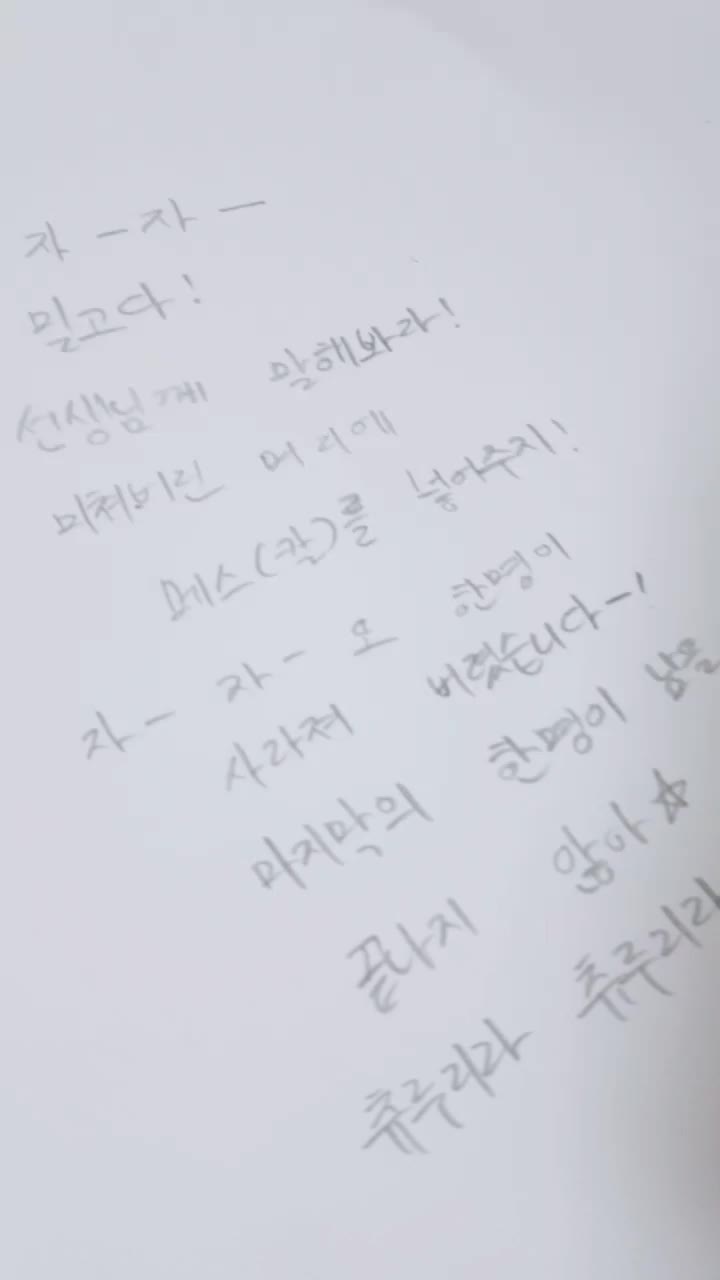 자 - 자 -
밀고다!
선생님께 말해봐라!
미쳐버린 머리에
메스(칼)를 넣어주지!
자 - 자 - 오 한명이
사라져 버렸습니다-!
마지막의 한명이 남을
끝나지 않아☆
츄루리라 츄루리라